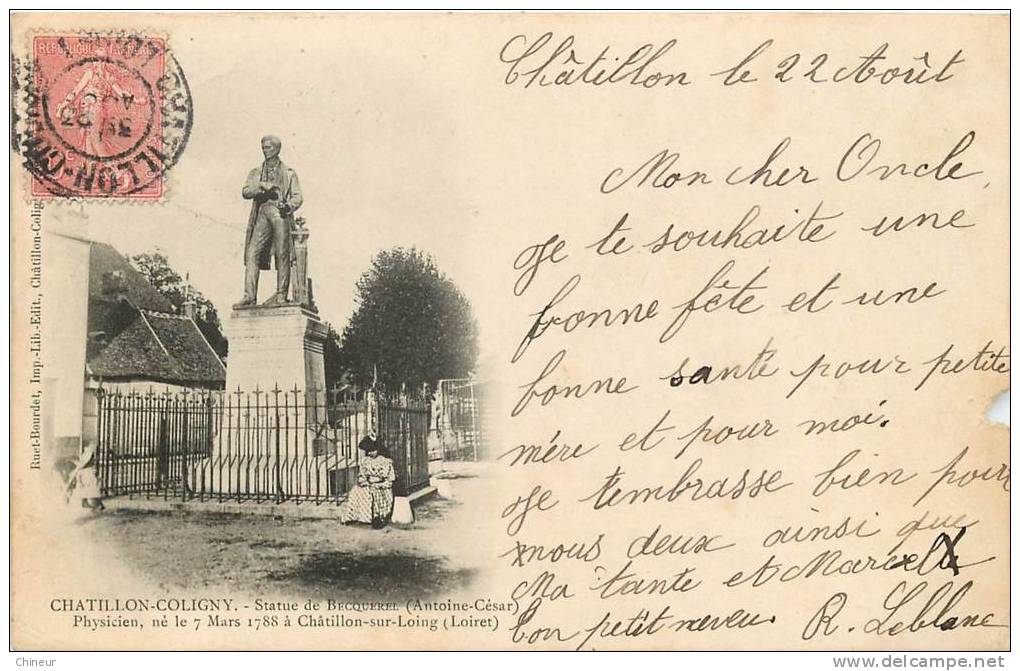 Châtillon le 22 Août
Mon cher Oncle,
Je te souhaite une
bonne fête et une
bonne santé pour petite
mère et pour moi.
Je t'embrasse bien pour
nous deux ainsi que
Ma tante et Marcel
Ton petit neveu. R. Leblanc
REPUBLIQUE FRANÇAISE
Ruet-Bourdet, Imp.-Lib.-Edit., Châtillon-Colig
CHATILLON-COLIGNY. - Statue de BECQUEREL (Antoine-César)
Physicien, né le 7 Mars 1788 à Châtillon-sur-Loing (Loiret)
Chineur
www.delcampe.net